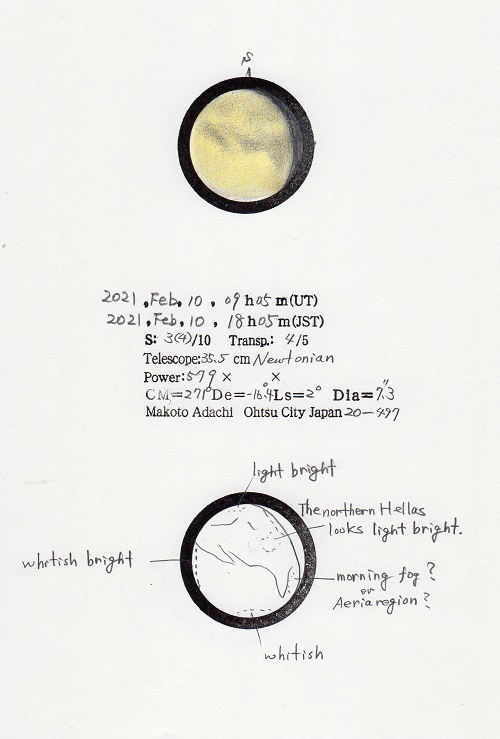 S
2021, Feb, 10, 09h05m(UT)
2021, Feb, 10, 18h05m(JST)
S: 3(4)/10 Transp.: 4/5
Telescope:35.5 cm Newtonian
Power:579× ×
CM=271°De=-16.4°Ls=2° Dia=7.3"
Makoto Adachi Ohtsu City Japan 20-497
light bright
The northern Hellas
looks light bright.
whitish bright
morning fog?
or
Aeria region?
whitish